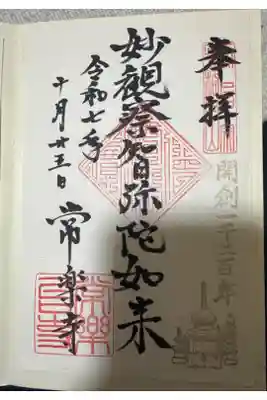 奉拝
開創一千二百年
妙觀察智弥陀如来
令和七年
十月廿五日
常楽寺